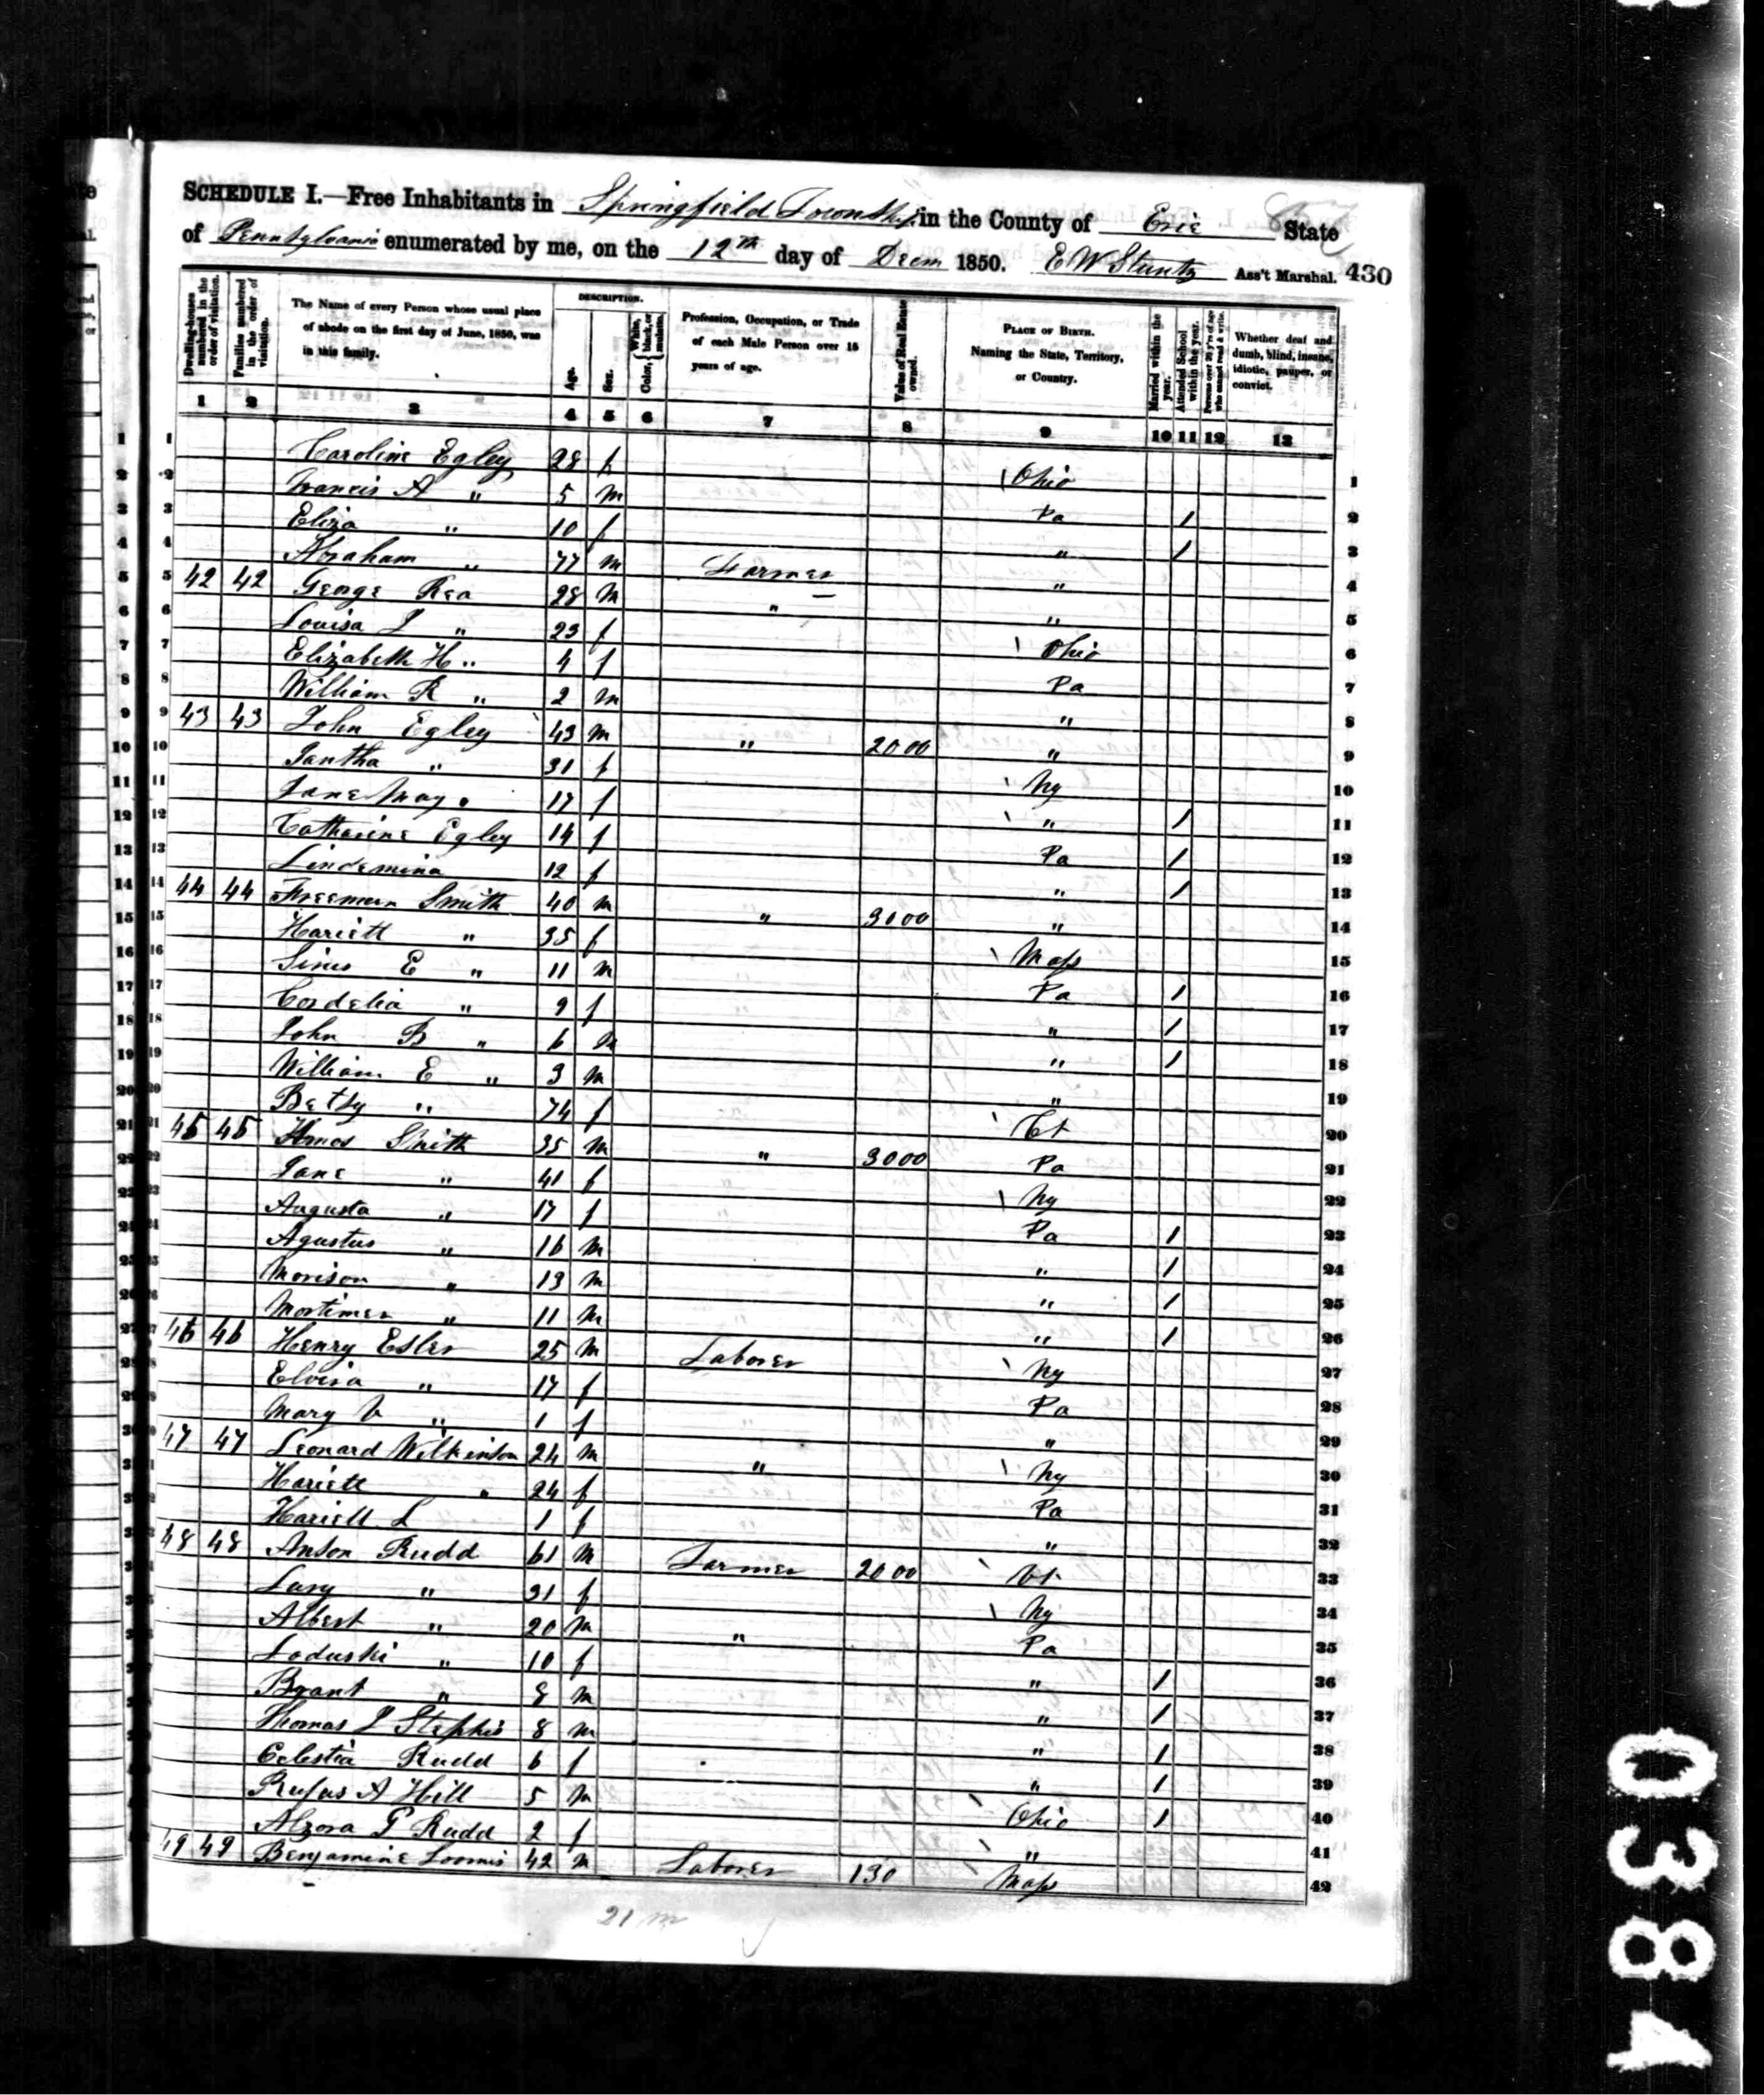 SCHEDULE I.—Free Inhabitants in Springfield Township in the County of Erie State
of Pennsylvania enumerated by me, on the 12th day of Decm 1850. E W Stuntz Ass't Marshal. 430
Dwelling-houses numbered in the order of visitation. Families numbered in the order of visitation. The Name of every Person whose usual place of abode on the first day of June, 1850, was in this family. DESCRIPTION. Age. Sex. Color, White, black, or mulatto. Profession, Occupation, or Trade of each Male Person over 15 years of age. Value of Real Estate owned. PLACE OF BIRTH. Naming the State, Territory, or Country. Married within the year. Attended School within the year. Persons over 20 y'rs of age who cannot read & write. Whether deaf and dumb, blind, insane, idiotic, pauper, or convict.
1 2 3 4 5 6 7 8 9 10 11 12 13
1 Caroline Egley 28 f Ohio 1
2 Francis A " 5 m Pa / 2
3 Eliza " 10 f " / 3
4 Abraham " 77 m Farmer " 4
5 42 42 George Rea 28 m " " 5
6 Louisa J " 23 f Ohio 6
7 Elizabeth H " 4 f Pa 7
8 William R " 2 m " 8
9 43 43 John Egley 43 m " 2000 " 9
10 Iantha " 31 f Ny 10
11 Jane May 17 f " / 11
12 Catharine Egley 14 f Pa / 12
13 Lindemina 12 f " / 13
14 44 44 Freeman Smith 40 m " 3000 " 14
15 Hariett " 35 f Mass 15
16 E " 11 m Pa / 16
17 Cordelia " 9 f " / 17
18 John B " 6 m " / 18
19 William E " 3 m " 19
20 Betsy " 74 f Ct 20
21 45 45 Amos Smith 35 m " 3000 Pa 21
22 Jane " 41 f Ny 22
23 Augusta " 17 f Pa / 23
24 Agustus " 16 m " / 24
25 Morison " 13 m " / 25
26 Mortimer " 11 m " / 26
27 46 46 Henry Esler 25 m Laborer Ny 27
28 Elvira " 17 f Pa 28
29 Mary V " 1 f " 29
30 47 47 Leonard Wilkinson 24 m " Ny 30
31 Hariett " 24 f Pa 31
32 Hariett L 1 f " 32
33 48 48 Anson Rudd 61 m Farmer 2000 Vt 33
34 Lucy " 31 f Ny 34
35 Albert " 20 m " Pa 35
36 Loduski " 10 f " / 36
37 Bryant " 8 m " / 37
38 Thomas J 8 m " / 38
39 Celestia Rudd 6 f " / 39
40 Rufus A Hill 5 m Ohio / 40
41 Alzora P Rudd 2 f " 41
49 49 Benjamine Loomis 42 m Laborer 130 Mass 42
21 m
0384